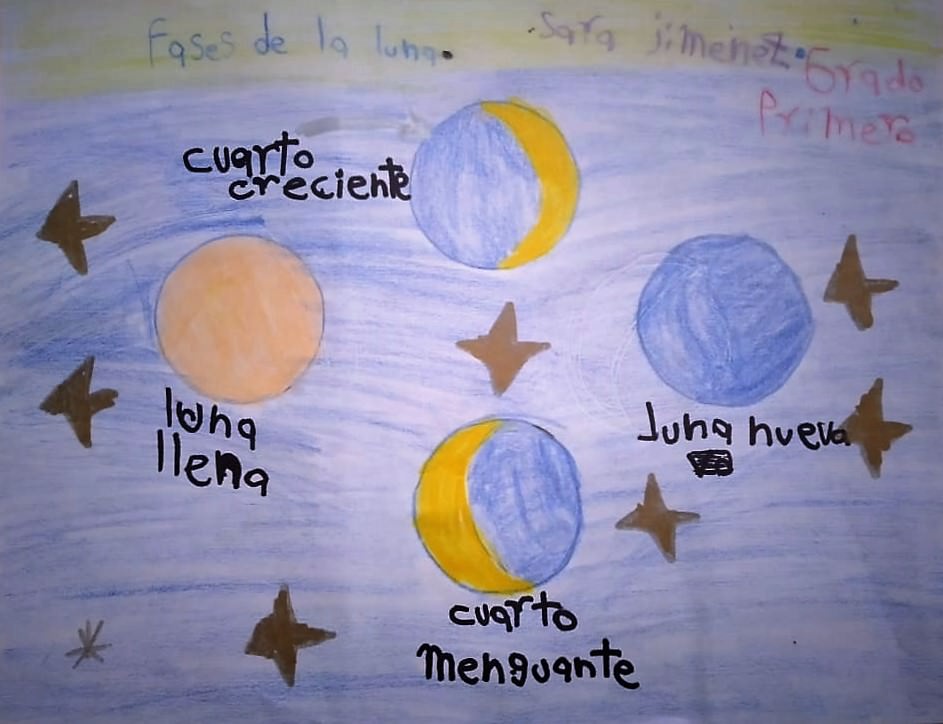 Fases de la luna.
Sara jimenez.
Grado
Primero
cuarto
creciente
luna
llena
luna nueva
cuarto
menguante